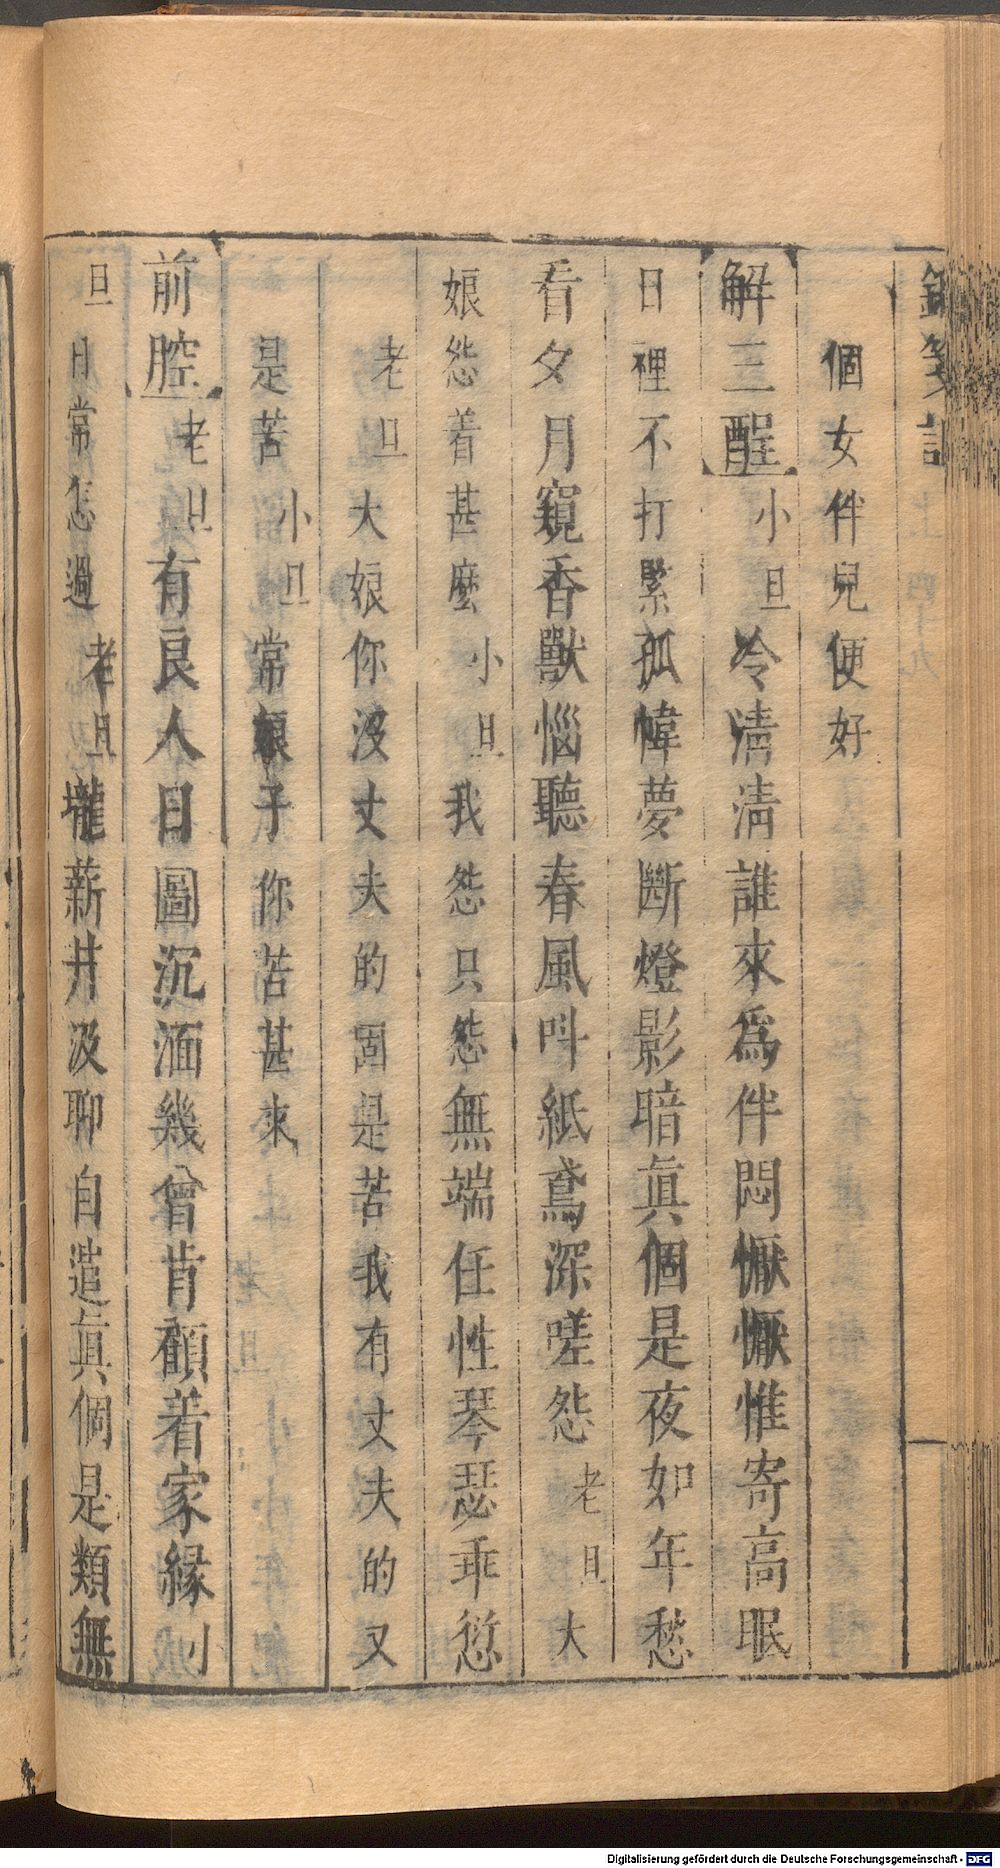 個女伴兒便好
解三酲 小旦 冷清清誰來爲伴悶懨懨惟寄高眠
日裡不打緊孤幃夢斷燈影暗眞個是夜如年愁
看夕月窺香獸惱聽春風叫紙鳶深嗟怨 老旦 大
娘怨着甚麼 小旦 我怨只怨無端任性琴瑟乖愆
老旦 大娘你沒丈夫的固是苦我有丈夫的又
是苦 小旦 常娘子你苦甚來
前腔 老旦 有良人日圖沉湎幾曾肯顧着家緣 小
旦 日常怎過 老旦 壠薪井汲聊自造眞個是類無
Digitalisierung gefördert durch die Deutsche Forschungsgemeinschaft - DFG